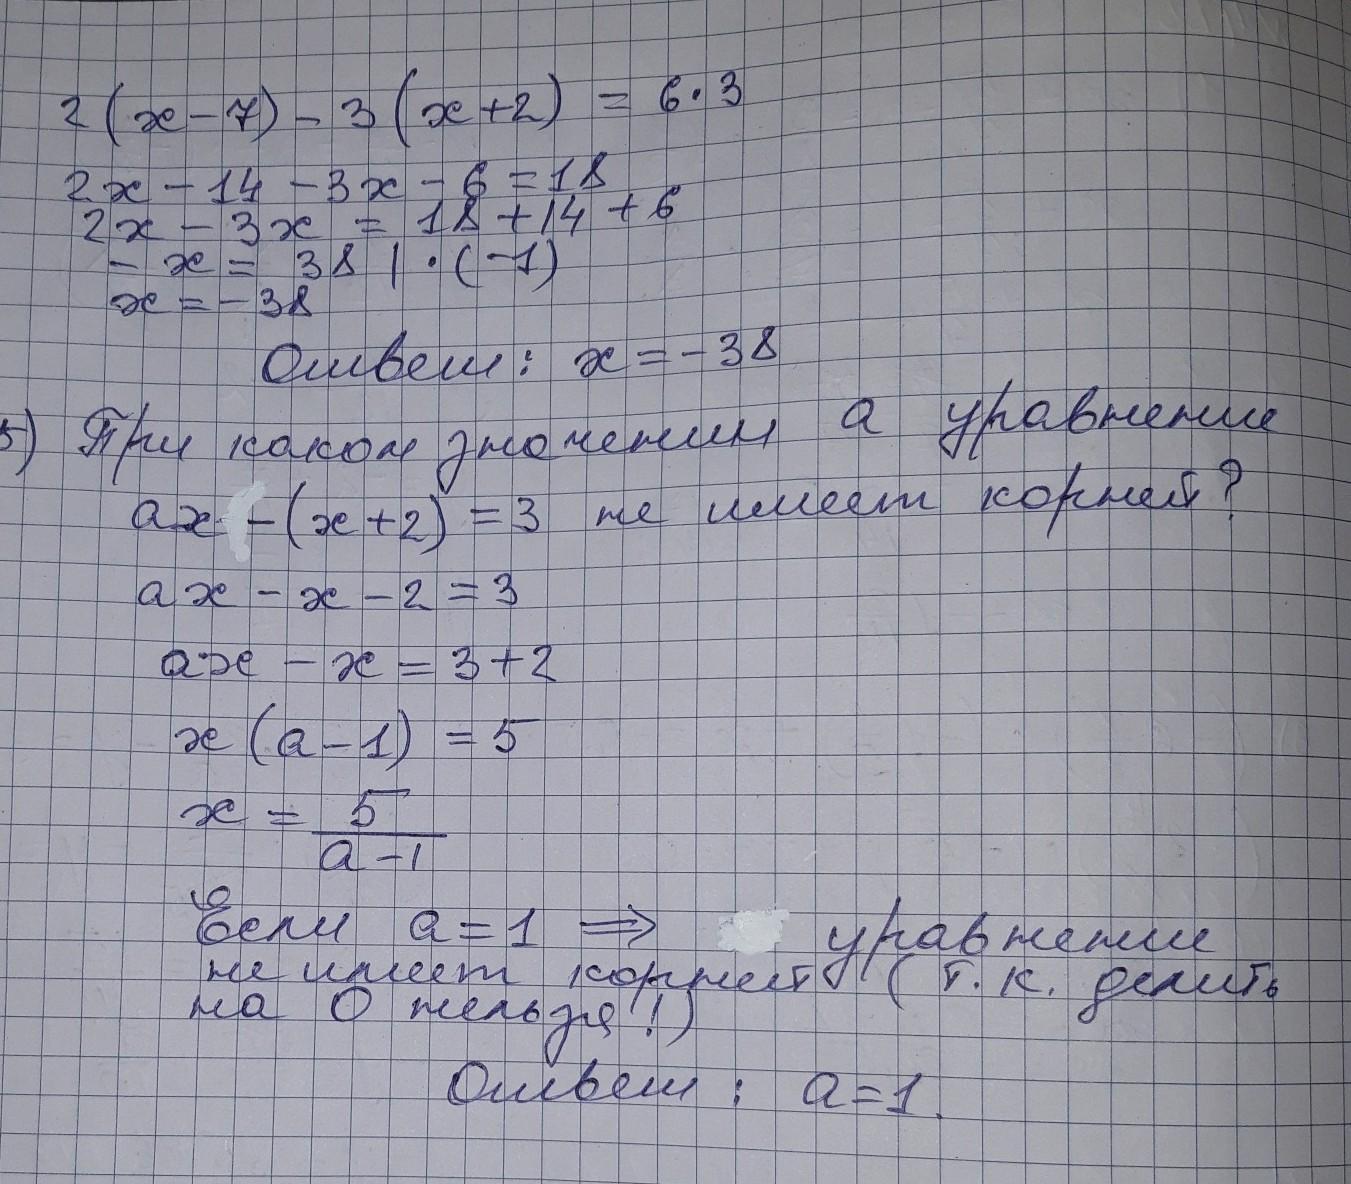 2(x-7)-3(x+2)=6·3
2x-14-3x-6=18
2x-3x=18+14+6
-x=38 | ·(-1)
x=-38
Ответ: x=-38
5) При каком значении a уравнение
ax-(x+2)=3 не имеет корней?
ax-x-2=3
ax-x=3+2
x(a-1)=5
x=5/(a-1)
Если a=1 ⇒ уравнение
не имеет корней (т.к. делить
на 0 нельзя!)
Ответ: a=1.